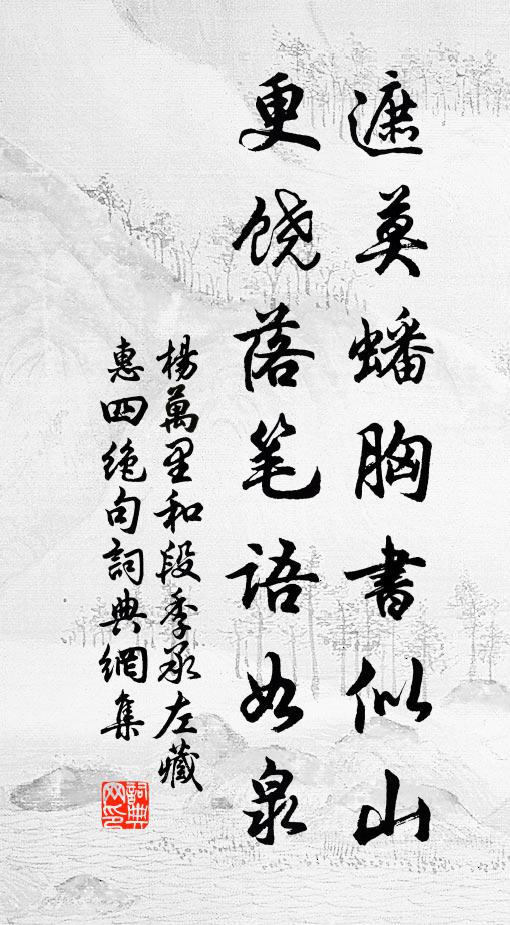 遮莫蟠胸書似山
更饶落笔语如泉
楊萬里和段季承左藏
惠四絶句詞典網集
詞典网印